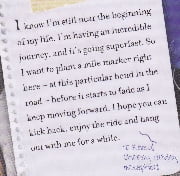 I know I'm still near the beginning
of my life. I'm having an incredible
journey, and it's going superfast. So
I want to plant a mile marker right
here – at this particular bend in the
road – before it starts to fade as I
keep moving forward. I hope you can
kick back, enjoy the ride and hang
out with me for a while.